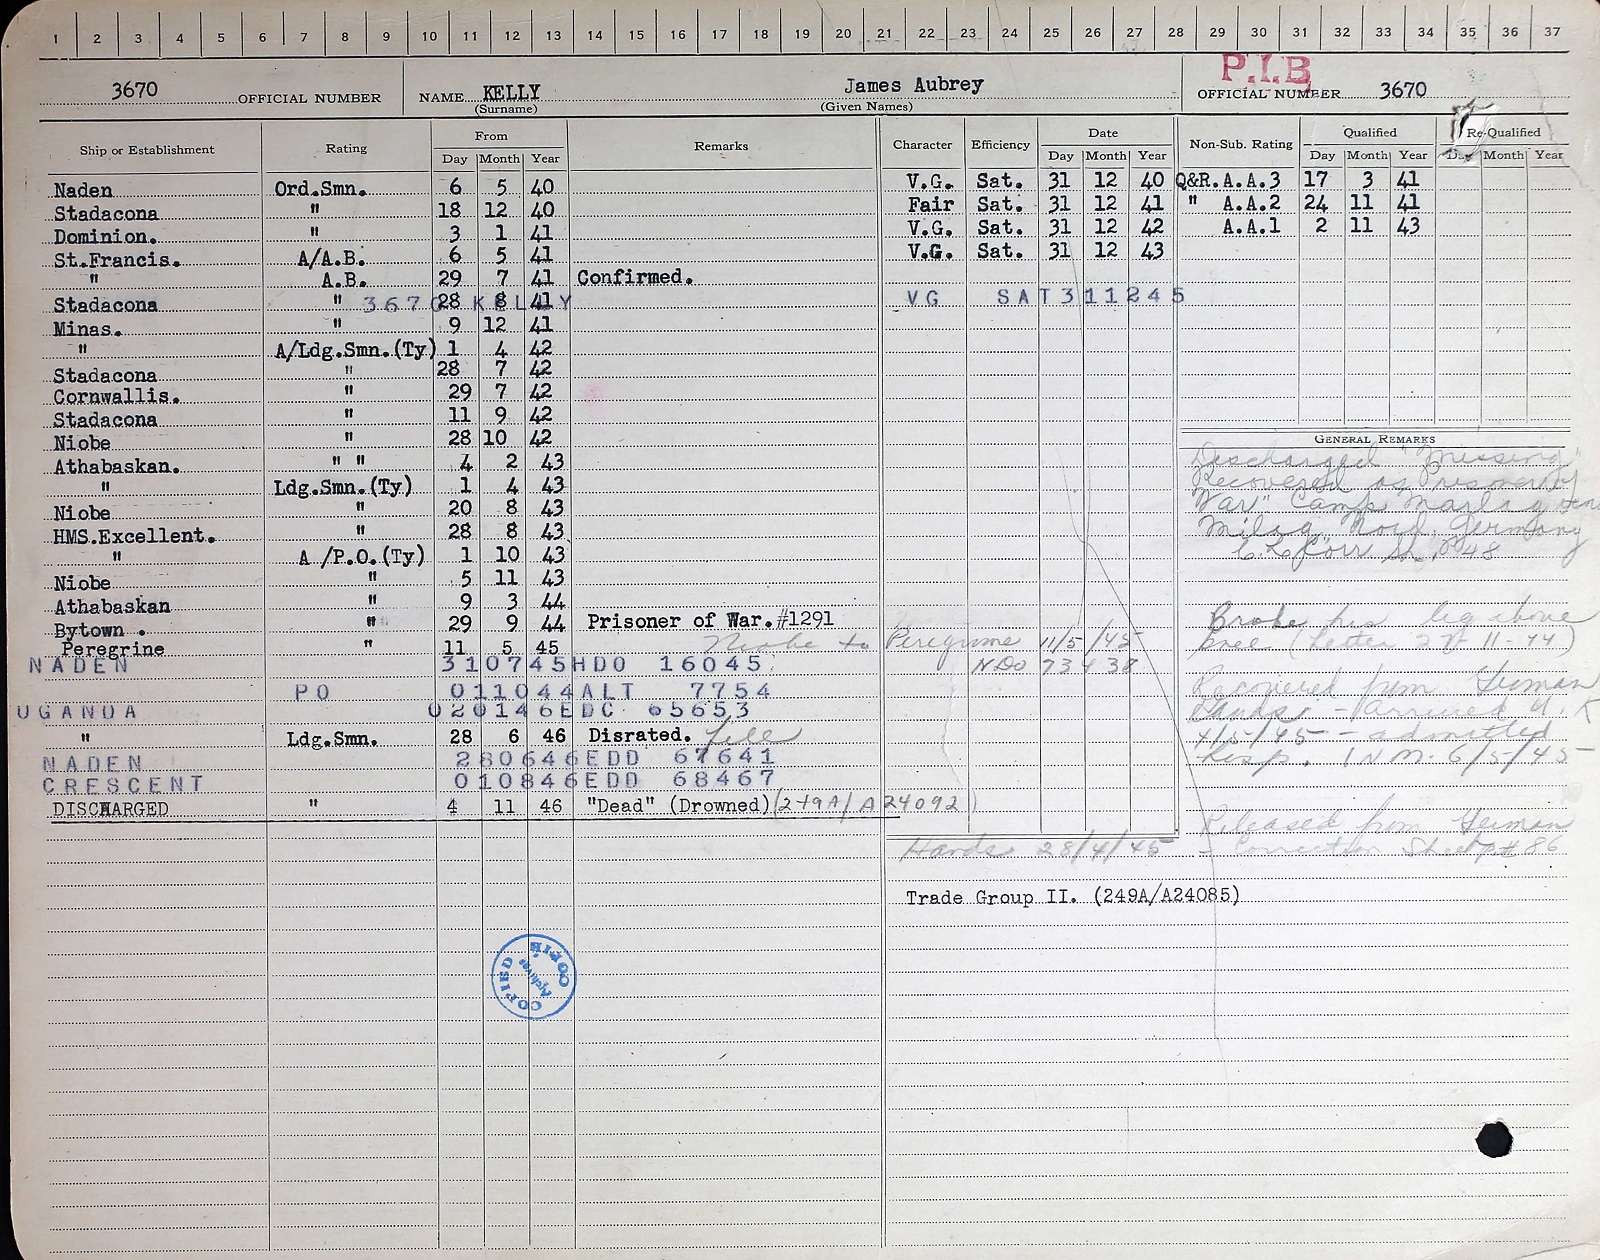 1 2 3 4 5 6 7 8 9 10 11 12 13 14 15 16 17 18 19 20 21 22 23 24 25 26 27 28 29 30 31 32 33 34 35 36 37
P.I.B
3670 OFFICIAL NUMBER NAME KELLY James Aubrey OFFICIAL NUMBER 3670
(Surname) (Given Names)
Ship or Establishment Rating From Remarks Character Efficiency Date Non-Sub. Rating Qualified Re-Qualified
Day Month Year Day Month Year Day Month Year Day Month Year
Naden Ord.Smn. 6 5 40 V.G. Sat. 31 12 40 Q&R.A.A.3 17 3 41
Stadacona " 18 12 40 Fair Sat. 31 12 41 " A.A.2 24 11 41
Dominion. " 3 1 41 V.G. Sat. 31 12 42 A.A.1 2 11 43
St.Francis. A/A.B. 6 5 41 V.G. Sat. 31 12 43
" A.B. 29 7 41 Confirmed.
3670 KELLY VG SAT311245
Stadacona " 28 8 41
Minas. " 9 12 41
" A/Ldg.Smn.(Ty) 1 4 42
Stadacona " 28 7 42
Cornwallis. " 29 7 42
Stadacona " 11 9 42
Niobe " 28 10 42
Athabaskan. " " 4 2 43
" Ldg.Smn.(Ty) 1 4 43
Niobe " 20 8 43
HMS.Excellent. " 28 8 43
" A/P.O.(Ty) 1 10 43
Niobe " 5 11 43
Athabaskan " 9 3 44
Bytown. " 29 9 44 Prisoner of War.#1291
Peregrine " 11 5 45 Niobe to Peregrine 11/5/45
NADEN 310745HDO 16045 NDo 73438
PO 011044ALT 7754
UGANDA 020146EDC 65653
" Ldg.Smn. 28 6 46 Disrated.
NADEN 280646EDD 67641
CRESCENT 010846EDD 68467
DISCHARGED " 4 11 46 "Dead" (Drowned) (249A/A24092)
GENERAL REMARKS
Discharged "Missing"
Recovered as Prisoner of
War" Camp Marlag und
Milag Nord, Germany
Corr Sh. P 48
Broke his leg above
knee (Letter 11-44)
Recovered from German
Hands - arrived U.K
4/5/45 - admitted
hosp. 6/5/45
Released from German
Hands 28/4/45 - Correction Sheet P# 86
Trade Group II. (249A/A24085)
COPIED Archives COPIE